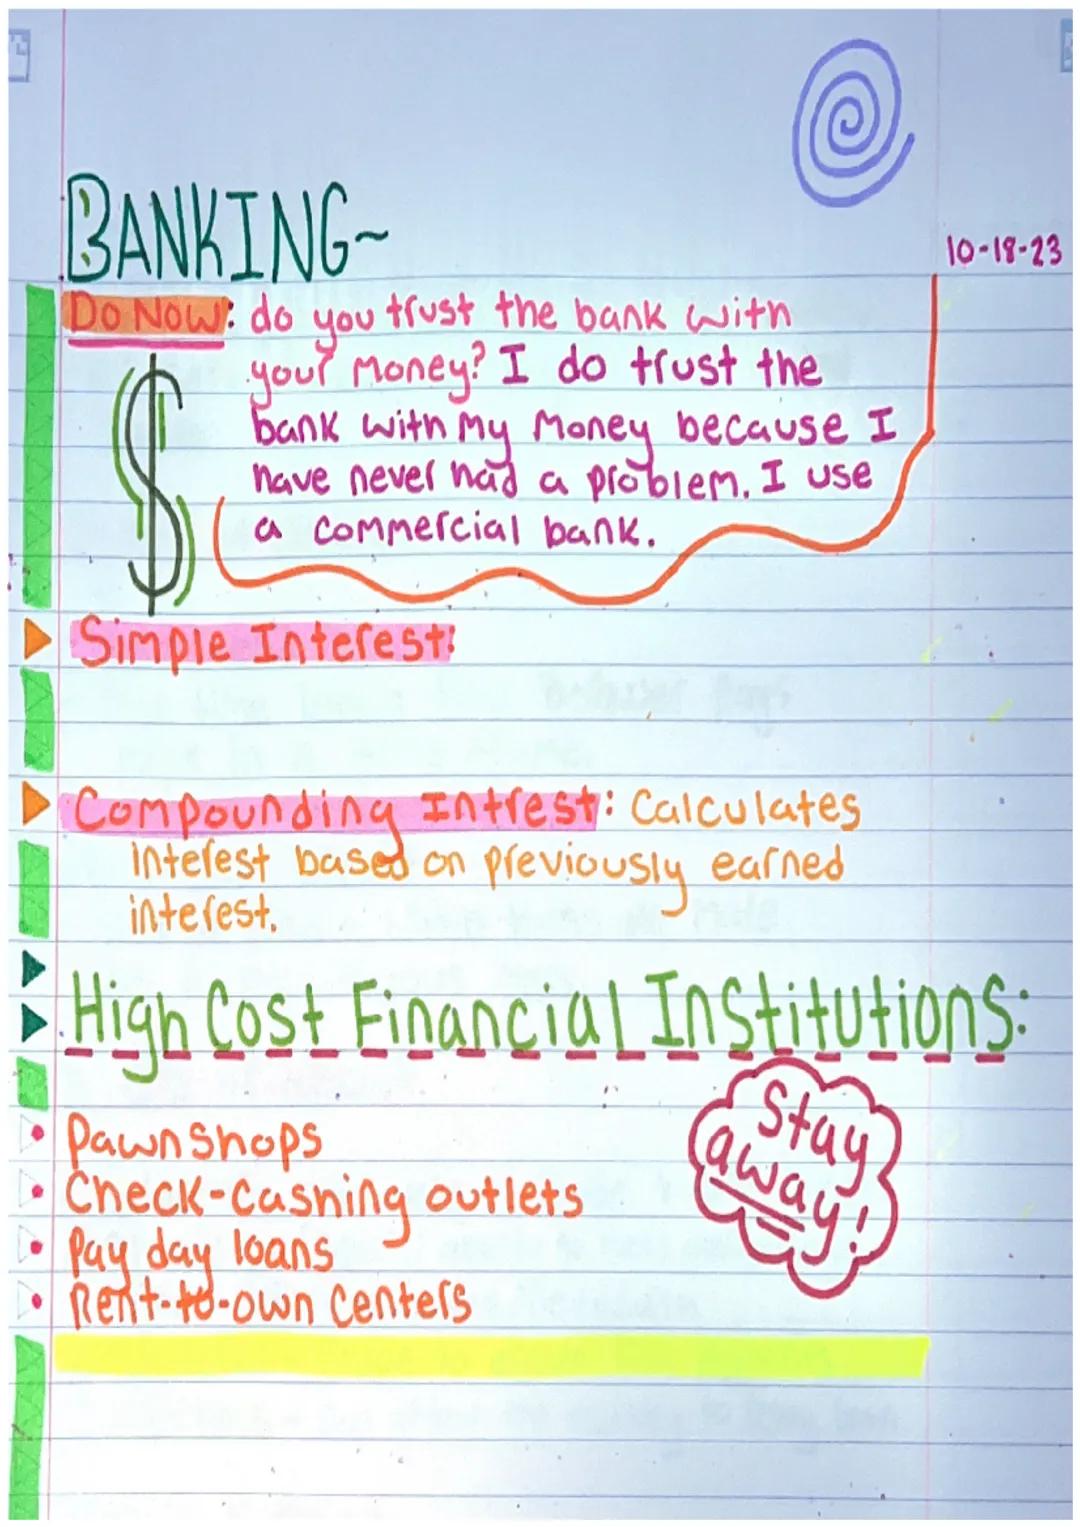 BANKING~
10-18-23
Do Now: do you trust the bank with
your money? I do trust the
bank with my money because I
have never had a problem. I use
a commercial bank.
Simple Interest:
Compounding Intrest: Calculates
interest based on previously earned
interest.
High Cost Financial Institutions:
Stay
away!
Pawnshops
Check-cashing outlets
Pay day loans
Rent-to-own centers